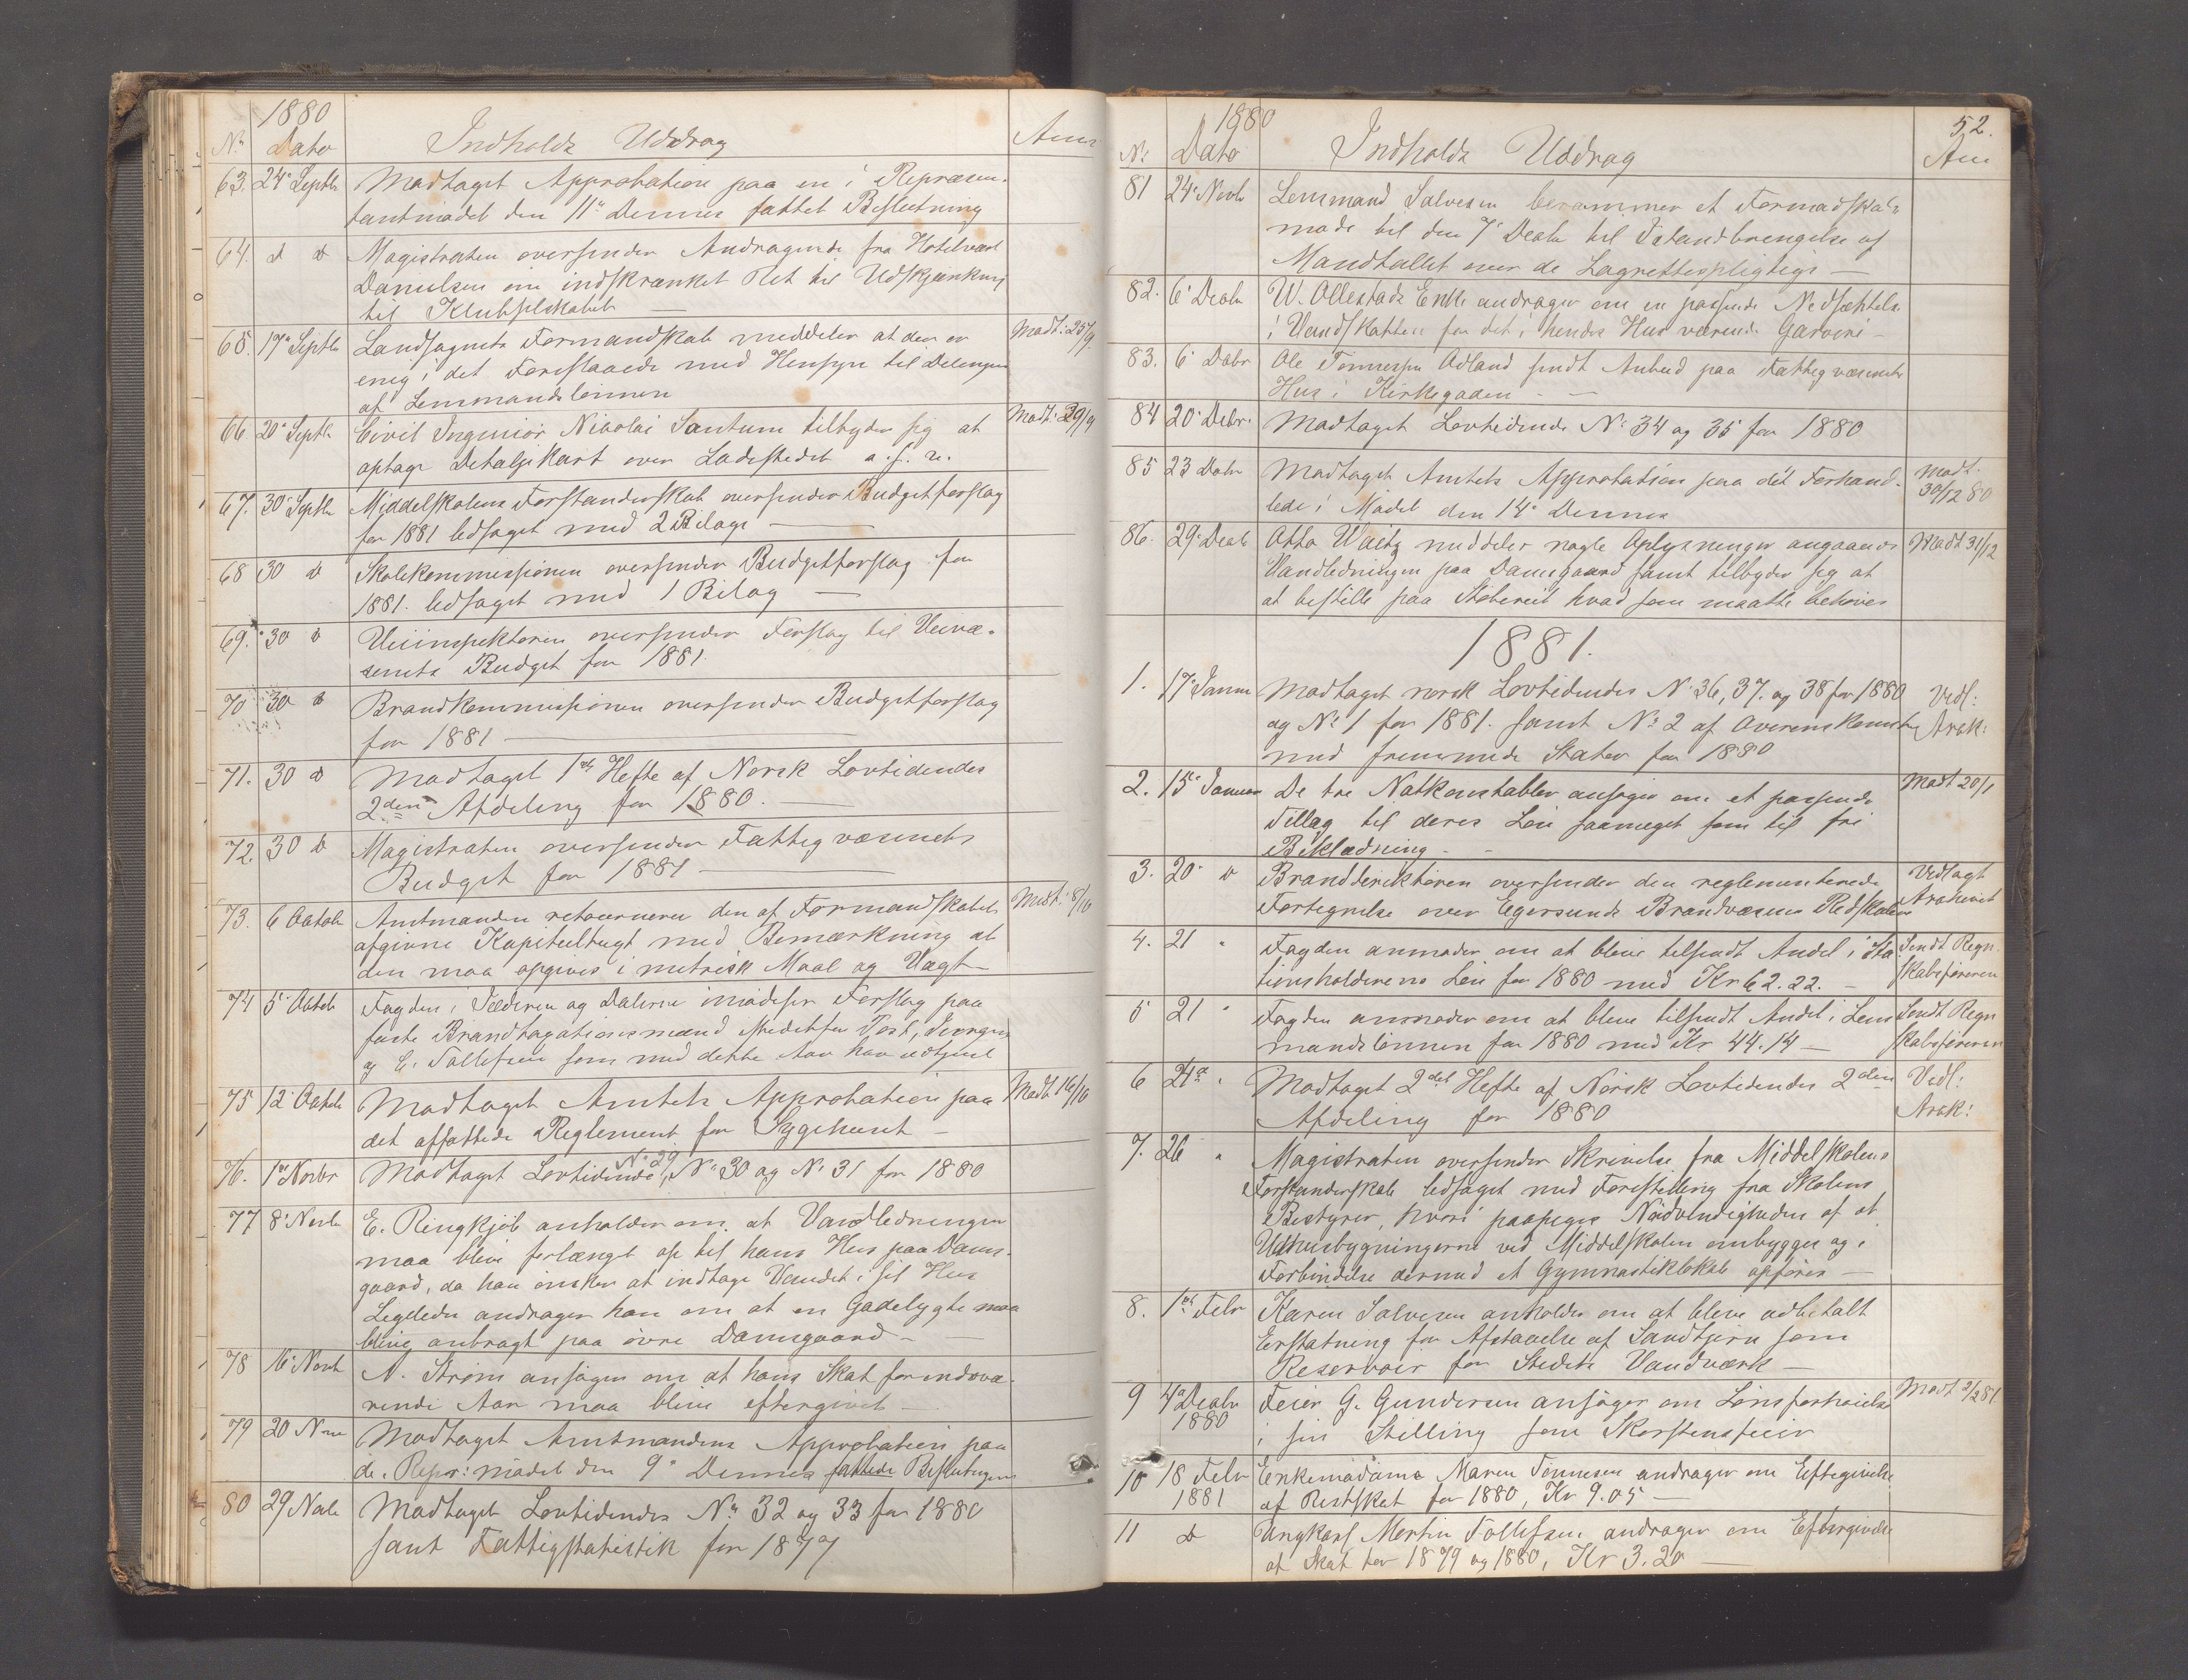 1880
No Dato Indholds Uddrag Anm
63. 24de Septbr Modtaget Approbation paa en i Repræsen-
tantmødet den 11te Dennes fattet Beslutning
64. d d Magistraten oversender Andragende fra Hotelvært
Danielsen om indskrænket Ret til Udskjænkning
til Klubselskabet —
65. 17de Septbr Landsognets Formandskab meddeler at den er Modt: 25/9
enig i det Foreslaaede med Hensyn til Delingen
af Lensmandslønnen
66. 20de Septbr Civil Ingeniør Nicolai Santum tilbyder sig at Modt: 29/9
optage Detaljekart over Ladestedet o.s.v.
67. 30te Septbr Middelskolens Forstanderskab oversender Budgetforslag
for 1881 ledsaget med 2 Bilage —
68 30 d Skolekommissionen oversender Budgetforslag for
1881. ledsaget med 1 Bilag —
69. 30 d Veiinspektøren oversender Forslag til Veivæ-
senets Budget for 1881.
70 30 d Brandkommissionen oversender Budgetforslag
for 1881 —
71. 30 d Modtaget 1ste Hefte af Norsk Lovtidendes
2den Afdeling for 1880. —
72. 30 d Magistraten oversender Fattigvæsenets
Budget for 1881 —
73. 6 Octobr Amtmanden retournerer den af Formandskabet Modt: 8/10
afgivne Kapiteltaxt med Bemærkning at
den maa opgives i metrisk Maal og Vægt —
74 5te Octobr Fogden i Jæderen og Dalerne imødeser Forslag paa
faste Brandtaxationsmænd istedetfor Jørgens
og E. Tollefsen som med dette Aar har udtjent
75 12te Octobr Modtaget Amtets Approbation paa Modt 16/10
det affattede Reglement for Sygehuset —
76. 1ste Novbr Modtaget Lovtidende No 29, No 30 og No 31 for 1880
77 8de Novbr E. Ringkjøb anholder om at Vandledningen
maa blive forlænget op til hans Hus paa Dams-
gaard, da han ønsker at indtage Vandet i sit Hus
Ligeledes andrager han om at en Gadelygte maa
blive anbragt paa øvre Damsgaard —
78 16de Novbr N. Strøm ansøger om at hans Skat for indevæ-
rende Aar maa blive eftergivet —
79 20 Nov Modtaget Amtmandens Approbation paa
de i Repr: mødet den 9de Dennes fattede Beslutninger
80 29 Novbr Modtaget Lovtidendes No 32 og 33 for 1880
samt Fattigstatistik for 1877
52.
1880
No Dato Indholds Uddrag Anm
81 24de Novbr Lensmand Salvesen berammer et Formandskabs-
møde til den 7de Decbr til Istandbringelse af
Mandtallet over de Lagrettespligtige —
82. 6te Decbr W. Ollestads Enke andrager om en passende Nedsættelse
i Vandskatten for det i hendes Hus værende Garveri —
83. 6 Decbr Ole Tønnessen Odland sendt Anbud paa Fattigvæsenets
Hus i Kirkegaden —
84 20de Decbr Modtaget Lovtidende No 34 og 35 for 1880
85 23 Decbr Modtaget Amtets Approbation paa det Forhand- Modt.
lede i Mødet den 14de Dennes 30/12 80
86. 29de Decbr Otto Waitz meddeler nogle Oplysninger angaaende Modt 31/12
Vandledningen paa Damsgaard samt tilbyder sig at
at bestille paa Støberiet hvad som maatte behøves
1881.
1. 17de Januar Modtaget norsk Lovtidendes No 36, 37. og 38 for 1880 Vedl:
og No 1 for 1881. samt No 2 af Overenskomster Arch:
med fremmede Stater for 1880
2. 15de Januar De tre Natkonstabler ansøger om et passende Modt 20/1
Tillæg til deres Løn saameget som til fri
Beklædning —
3. 20de d Branddirektøren oversender den reglementerede Vedlagt
Fortegnelse over Egersunds Brandvæsens Redskaber Archivet
4. 21 " Fogden anmoder om at blive tilsendt Andel i Sta- Sendt Regn-
tionsholderens Løn for 1880 med Kr 62.22. — skabsføreren
5 21 " Fogden anmoder om at blive tilsendt Andel i Lens Sendt Regn
mandslønnen for 1880 med Kr 44.14 — skabsføreren
6 21de " Modtaget 2det Hefte af Norsk Lovtidendes 2den Vedl:
Afdeling for 1880 Arch:
7. 26 " Magistraten oversender Skrivelse fra Middelskolens
Forstanderskab ledsaget med Forestilling fra Skolens
Bestyrer, hvori paapeges Nødvendigheden af at
Udhusbygningerne ved Middelskolen ombygges og i
Forbindelse dermed et Gymnastiklokale opføres —
8. 1ste Febr Karen Salvesen anholder om at blive udbetalt
Erstatning for Afstaaelse af Sandtjern som
Reservoir for Stedets Vandværk —
9 4de Decbr Feier G. Gundersen ansøger om Lønsforhøielse Modt 2/2 81
1880 i sin Stilling som Skorstensfeier
10 18 Febr Enkemadame Maren Tønnesen andrager om Eftergivelse
1881 af Restskat for 1880, Kr 9.05 —
11 d Ungkarl Martin Tollefsen andrager om Eftergivelse
af Skat for 1879 og 1880, Kr 3.20 —